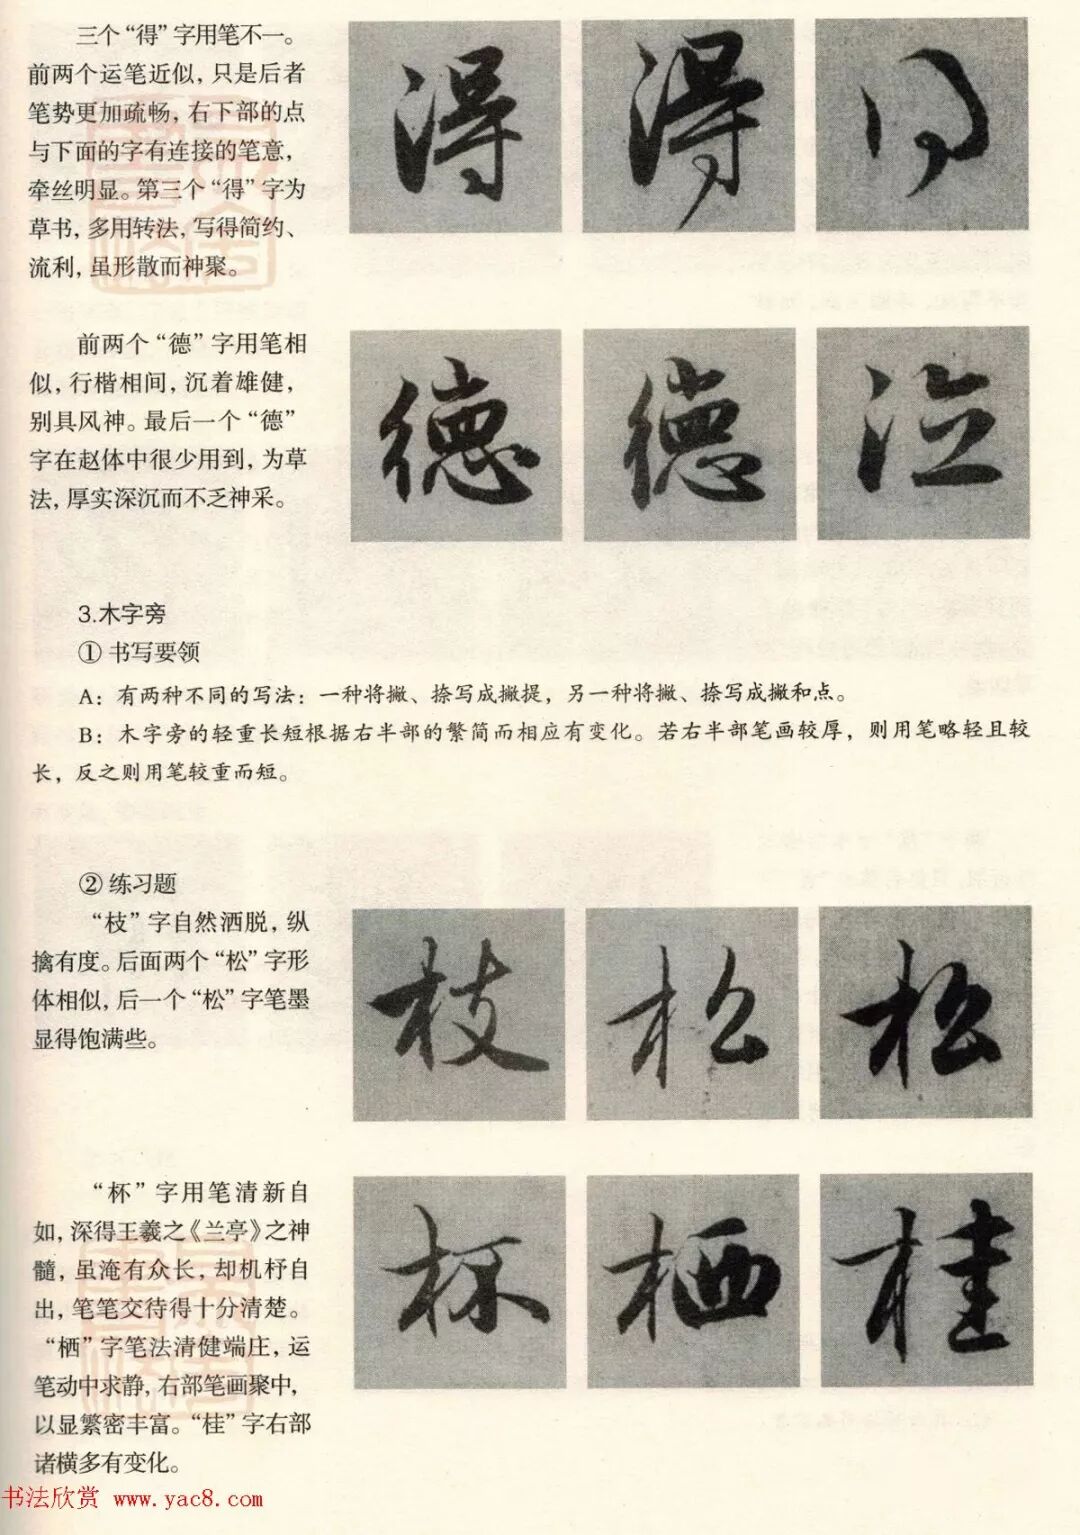 三个“得”字用笔不一。
前两个运笔近似，只是后者
笔势更加疏畅，右下部的点
与下面的字有连接的笔意，
牵丝明显。第三个“得”字为
草书，多用转法，写得简约、
流利，虽形散而神聚。
得 得 得
前两个“德”字用笔相
似，行楷相间，沉着雄健，
别具风神。最后一个“德”
字在赵体中很少用到，为草
法，厚实深沉而不乏神采。
德 德 德
3.木字旁
① 书写要领
A：有两种不同的写法：一种将撇、捺写成撇提，另一种将撇、捺写成撇和点。
B：木字旁的轻重长短根据右半部的繁简而相应有变化。若右半部笔画较厚，则用笔略轻且较
长，反之则用笔较重而短。
② 练习题
“枝”字自然洒脱，纵
擒有度。后面两个“松”字形
体相似，后一个“松”字笔墨
显得饱满些。
枝 松 松
“杯”字用笔清新自
如，深得王羲之《兰亭》之神
髓，虽淹有众长，却机杼自
出，笔笔交待得十分清楚。
“栖”字笔法清健端庄，运
笔动中求静，右部笔画聚中，
以显繁密丰富。“桂”字右部
诸横多有变化。
杯 栖 桂
书法欣赏 www.yac8.com